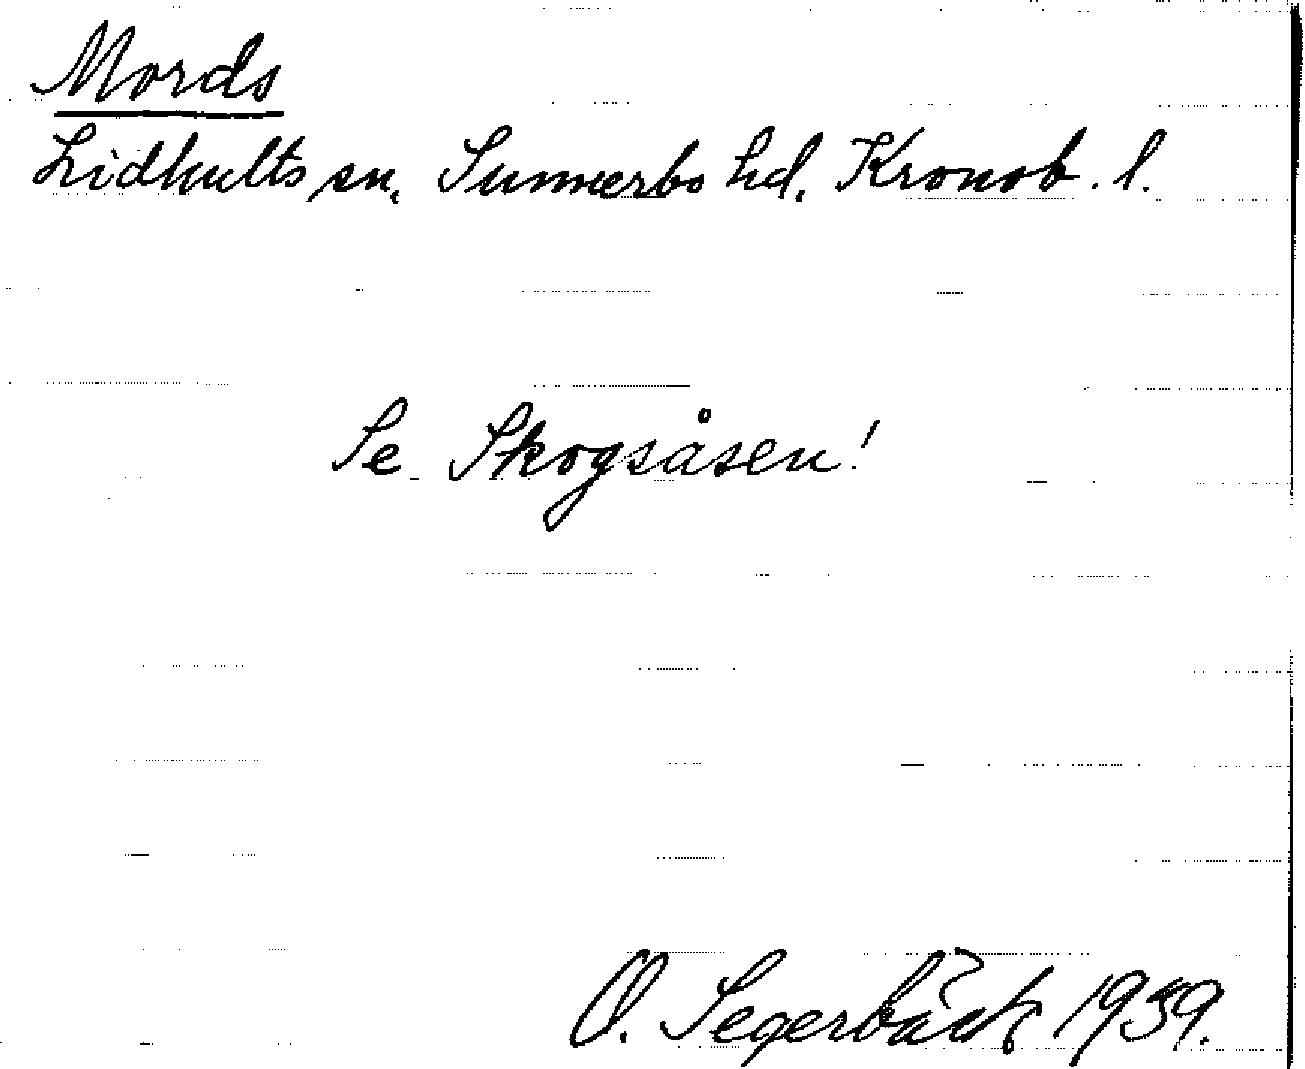 Mords
Lidhults sn. Sunnerbo hd. Kronob. l.
Se Skogsåsen!
O. Segerbäck 1939.